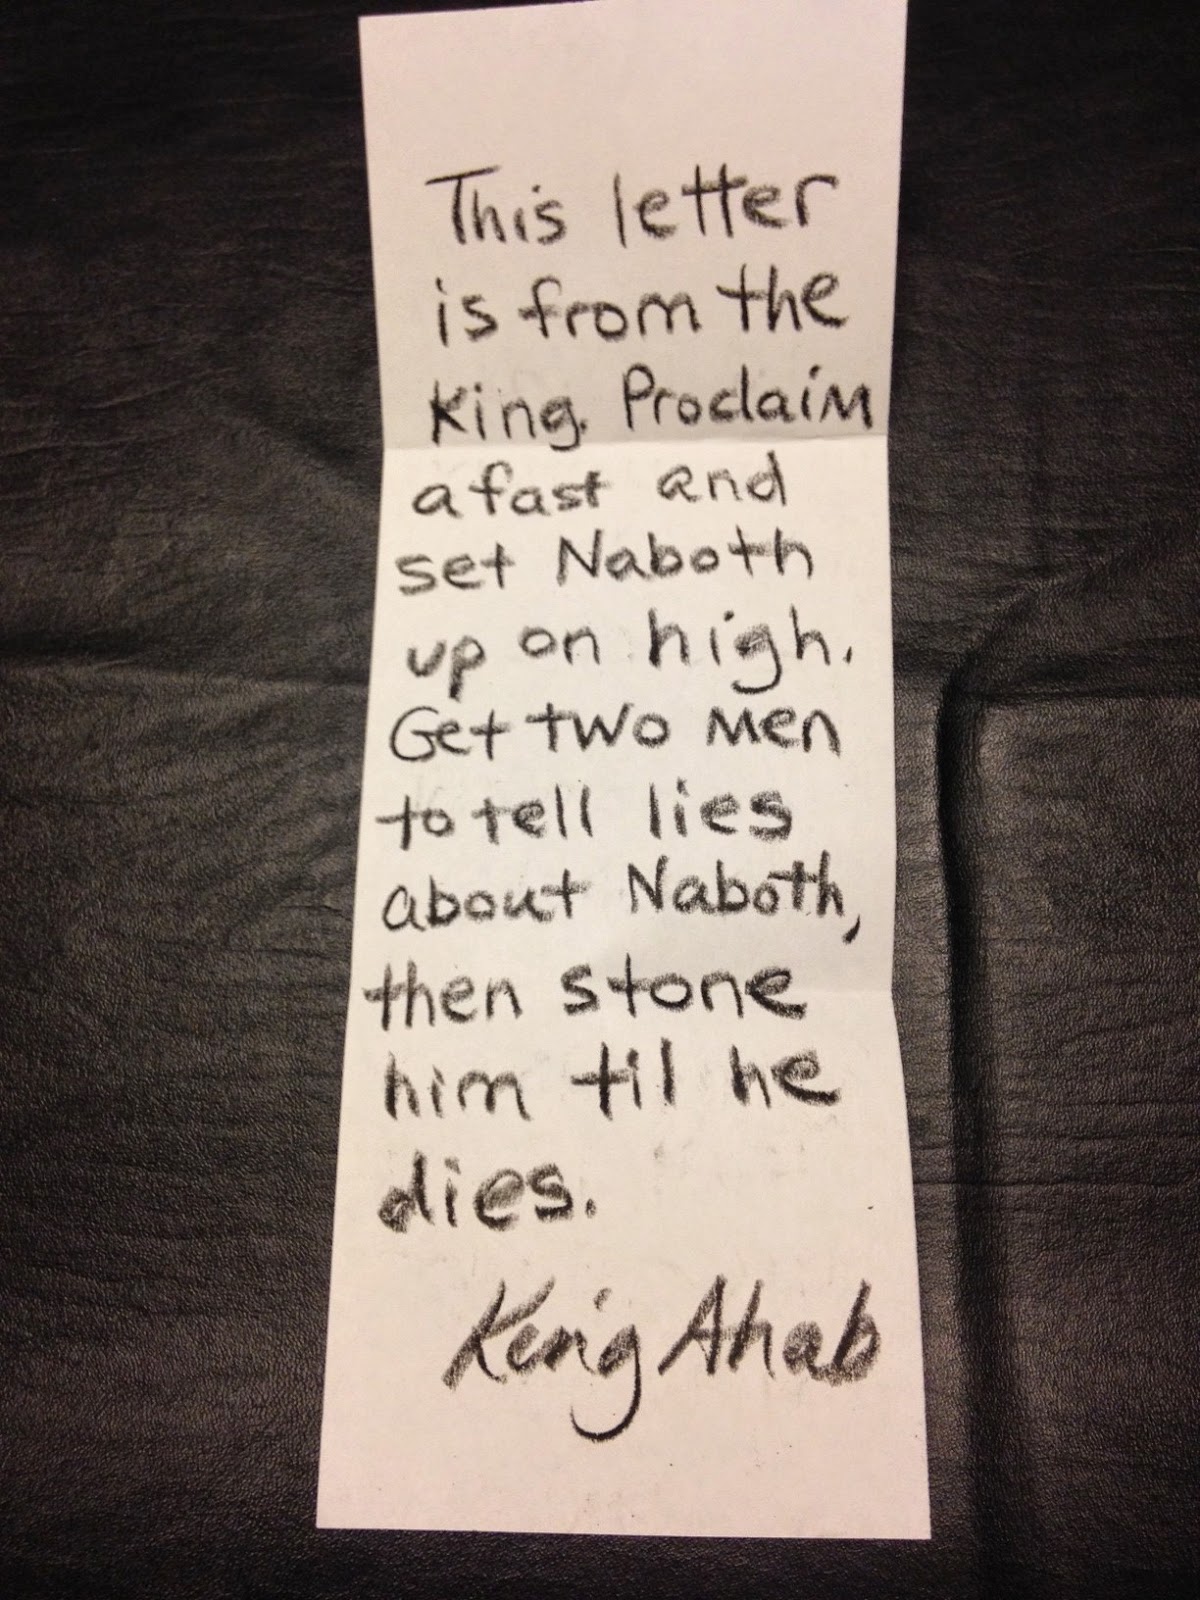 This letter
is from the
King. Proclaim
a fast and
set Naboth
up on high.
Get two men
to tell lies
about Naboth,
then stone
him til he
dies.
King Ahab